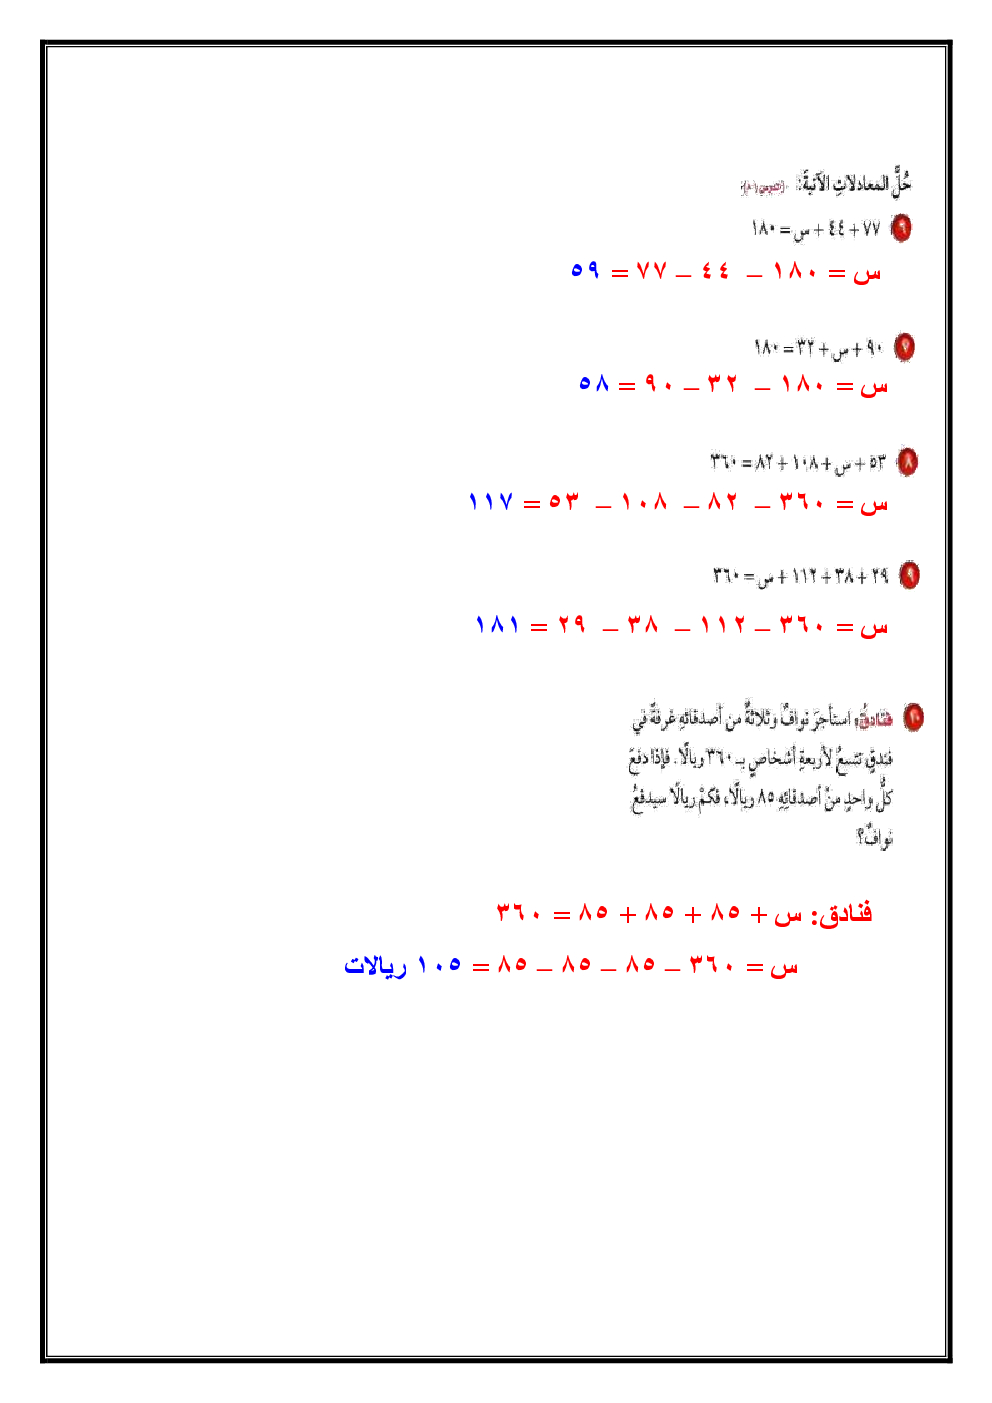 حُلَّ المعادلاتِ الآتيةَ: (الدرس ١-٨)
٦ ٧٧ + ٤٤ + س = ١٨٠
س = ١٨٠ – ٤٤ – ٧٧ = ٥٩
٧ ٩٠ + س + ٣٢ = ١٨٠
س = ١٨٠ – ٣٢ – ٩٠ = ٥٨
٨ ٥٣ + س + ١٠٨ + ٨٢ = ٣٦٠
س = ٣٦٠ – ٨٢ – ١٠٨ – ٥٣ = ١١٧
٩ ٢٩ + ٣٨ + ١١٢ + س = ٣٦٠
س = ٣٦٠ – ١١٢ – ٣٨ – ٢٩ = ١٨١
١٠ فنادقُ: استأجرَ نوافٌ وثلاثةٌ من أصدقائهِ غرفةً في
فندقٍ تتسعُ لأربعةِ أشخاصٍ بـ ٣٦٠ ريالًا. فإذا دفعَ
كلُّ واحدٍ منْ أصدقائِهِ ٨٥ ريالًا، فكمْ ريالًا سيدفعُ
نوافٌ؟
فنادق: س + ٨٥ + ٨٥ + ٨٥ = ٣٦٠
س = ٣٦٠ – ٨٥ – ٨٥ – ٨٥ = ١٠٥ ريالات